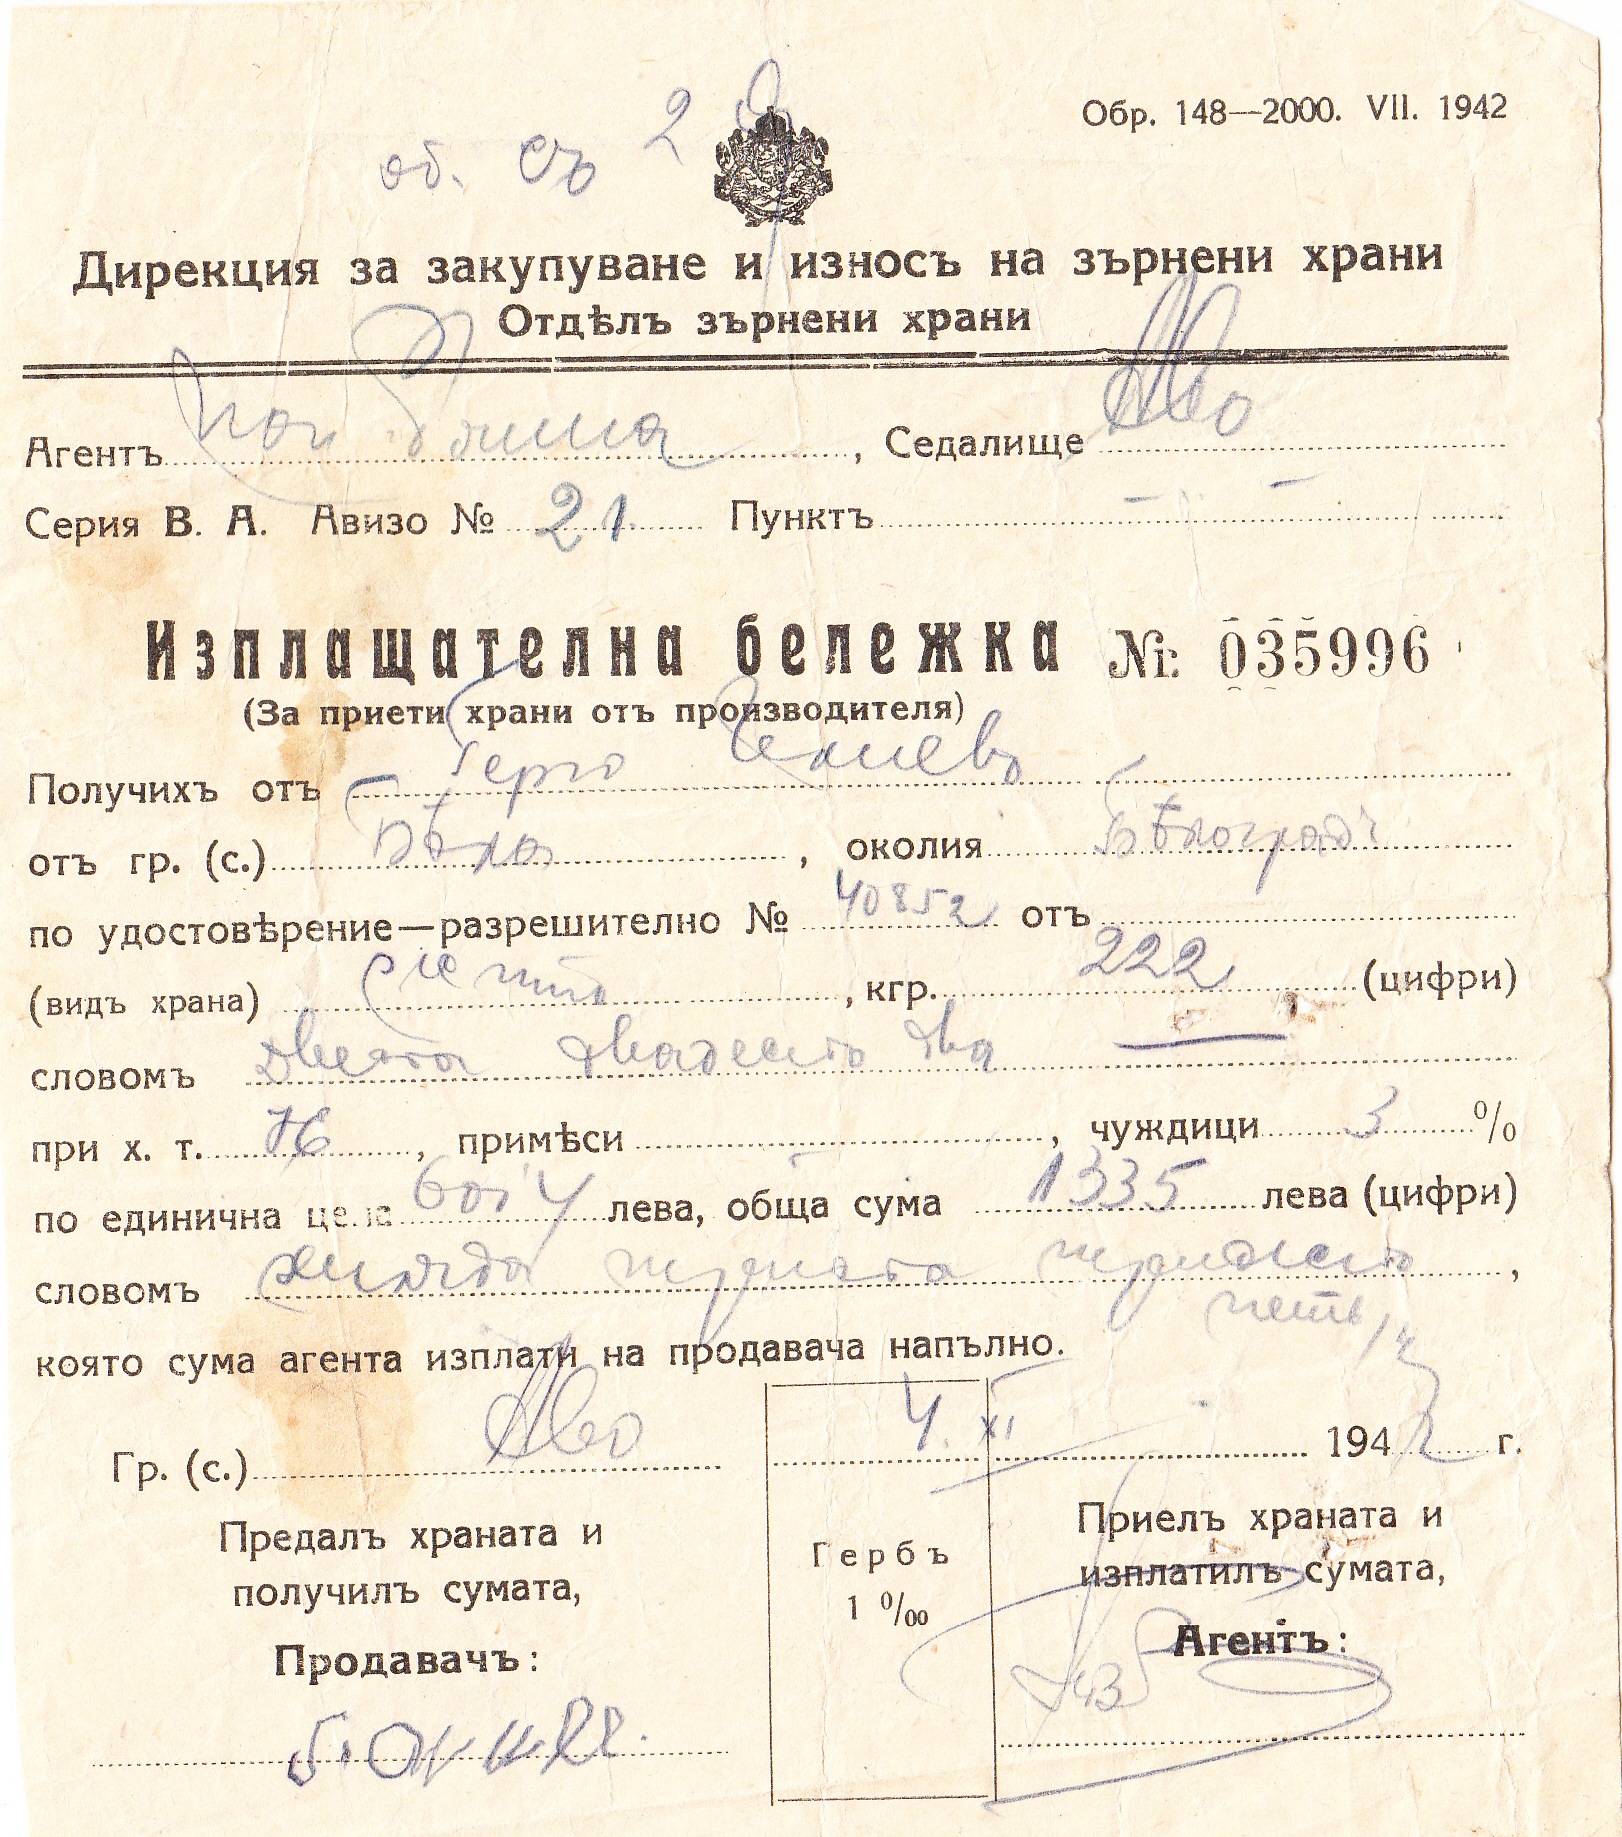 Обр. 148—2000. VII. 1942
об. съ 2
Дирекция за закупуване и износъ на зърнени храни
Отдѣлъ зърнени храни
Агентъ , Седалище
Серия В. А. Авизо № 21 Пунктъ
Изплащателна бележка № 035996
(За приети храни отъ производителя)
Получихъ отъ Герго
отъ гр. (с.) Бѣла , околия Бѣлоградч
по удостовѣрение—разрешително № 40852 отъ
(видъ храна) , кгр. 222 (цифри)
словомъ двеста двадесеть два
при х. т. 76 , примѣси , чуждици 3 %
по единична цена лева, обща сума 1335 лева (цифри)
словомъ хиляда триста тридесеть ,
петь
която сума агента изплати на продавача напълно.
Гр. (с.) 4. XI 1942 г.
Предалъ храната и
получилъ сумата,
Продавачъ:
Гербъ
1 ‰
Приелъ храната и
изплатилъ сумата,
Агентъ: